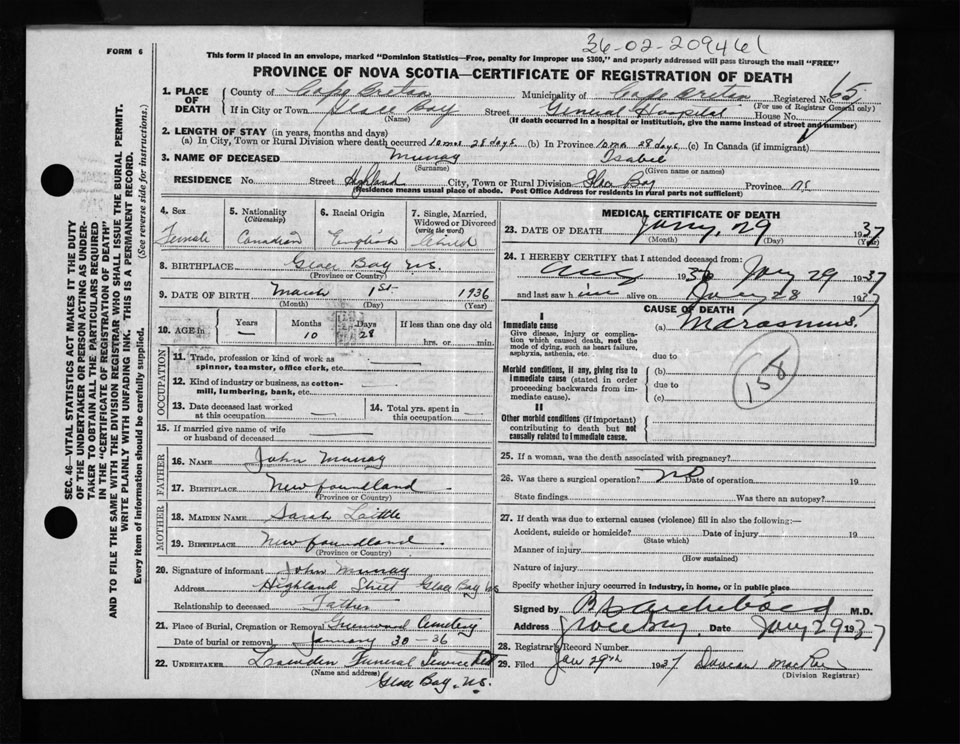 36-02-209461
FORM 6
This form if placed in an envelope, marked "Dominion Statistics—Free, penalty for improper use $300," and properly addressed will pass through the mail "FREE"
PROVINCE OF NOVA SCOTIA—CERTIFICATE OF REGISTRATION OF DEATH
1. PLACE OF DEATH
County of Cape Breton Municipality of Cape Breton Registered No. 65
(For use of Registrar General only)
If in City or Town Glace Bay Street General Hospital House No.
(Name) (If death occurred in a hospital or institution, give the name instead of street and number)
2. LENGTH OF STAY (in years, months and days)
(a) In City, Town or Rural Division where death occurred 10 mos 28 days (b) In Province 10 mos 28 days (c) In Canada (if immigrant)
3. NAME OF DECEASED Murray Isabel
(Surname) (Given name or names)
RESIDENCE No. Street Highland City, Town or Rural Division Glace Bay Province NS
(Residence means usual place of abode. Post Office Address for residents in rural parts not sufficient)
4. Sex Female
5. Nationality (Citizenship) Canadian
6. Racial Origin English
7. Single, Married, Widowed or Divorced (write the word) Child
8. BIRTHPLACE Glace Bay N.S.
(Province or Country)
9. DATE OF BIRTH March 1st. 1936
(Month) (Day) (Year)
10. AGE in Years Months 10 Days 28 If less than one day hrs. or min.
OCCUPATION
11. Trade, profession or kind of work as spinner, teamster, office clerk, etc.
12. Kind of industry or business, as cotton-mill, lumbering, bank, etc.
13. Date deceased last worked at this occupation
14. Total yrs. spent in this occupation
15. If married give name of wife or husband of deceased
FATHER
16. NAME John Murray
17. BIRTHPLACE Newfoundland
(Province or Country)
MOTHER
18. MAIDEN NAME Sarah
19. BIRTHPLACE Newfoundland
(Province or Country)
20. Signature of informant John Murray
Address Highland Street Glace Bay NS
Relationship to deceased Father
21. Place of Burial, Cremation or Removal Greenwood Cemetery
Date of burial or removal January 30 - 36
22. UNDERTAKER Funeral Service Ltd
(Name and address)
Glace Bay, N.S.
MEDICAL CERTIFICATE OF DEATH
23. DATE OF DEATH Jany. 29 1937
(Month) (Day) (Year)
24. I HEREBY CERTIFY that I attended deceased from:
Aug 1936 Jany 29 1937
and last saw h im alive on Jany 28 1937
CAUSE OF DEATH
I
Immediate cause
Give disease, injury or complication which caused death, not the mode of dying, such as heart failure, asphyxia, asthenia, etc.
(a) Marasmus.
due to
Morbid conditions, if any, giving rise to immediate cause (stated in order proceeding backwards from immediate cause).
(b)
due to
(c)
158
II
Other morbid conditions (if important) contributing to death but not causally related to immediate cause.
25. If a woman, was the death associated with pregnancy?
26. Was there a surgical operation? no Date of operation 19
State findings Was there an autopsy?
27. If death was due to external causes (violence) fill in also the following:—
Accident, suicide or homicide? Date of injury 19
(State which)
Manner of injury
(How sustained)
Nature of injury
Specify whether injury occurred in industry, in home, or in public place
Signed by Archibald M.D.
Address Glace Bay Date Jany 29 1937
28. Registrar's Record Number
29. Filed Jan 29th 1937 Duncan MacRae
(Division Registrar)
SEC. 46—VITAL STATISTICS ACT MAKES IT THE DUTY
OF THE UNDERTAKER OR PERSON ACTING AS UNDERTAKER
TO OBTAIN ALL THE PARTICULARS REQUIRED
IN THE "CERTIFICATE OF REGISTRATION OF DEATH"
AND TO FILE THE SAME WITH THE DIVISION REGISTRAR WHO SHALL ISSUE THE BURIAL PERMIT.
WRITE PLAINLY WITH UNFADING INK. THIS IS A PERMANENT RECORD.
Every item of information should be carefully supplied. (See reverse side for instructions.)